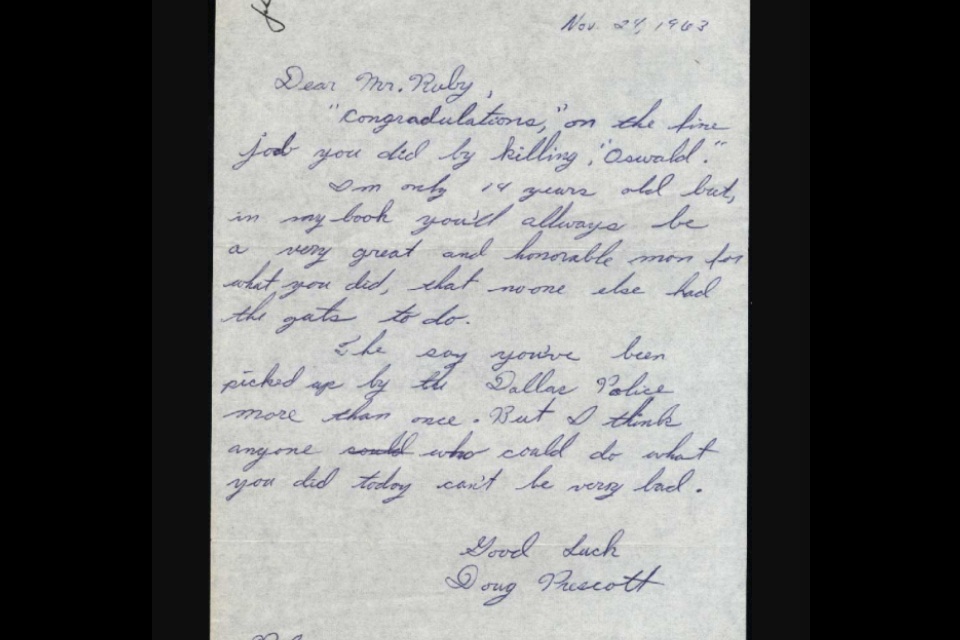 Nov. 24, 1963
Dear Mr. Ruby,
"Congradulations," on the fine
job you did by killing, "Oswald."
I'm only 14 years old but,
in my book you'll allways be
a very great and honorable man for
what you did, that noone else had
the gats to do.
The say you've been
picked up by the Dallas Police
more than once. But I think
anyone sould who could do what
you did today can't be very bad.
Good Luck
Doug Prescott